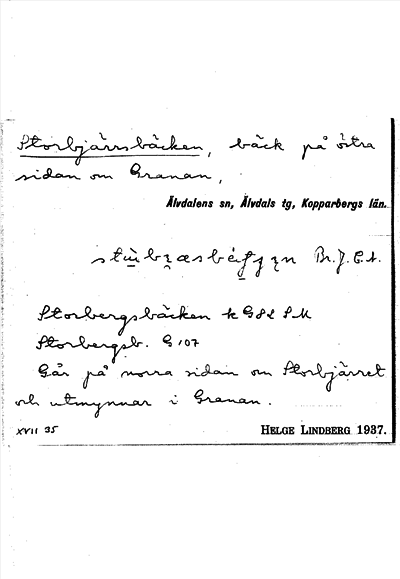 Storbjärrsbäcken, bäck på östra
sidan om Granan,
Älvdalens sn, Älvdals tg, Kopparbergs län.
Br. J. E. A.
Storbergsbäcken k G82 S.M
Storbergsb. G107
Går på norra sidan om Storbjärret
och utmynnar i Granan.
XVII 35
HELGE LINDBERG 1937.